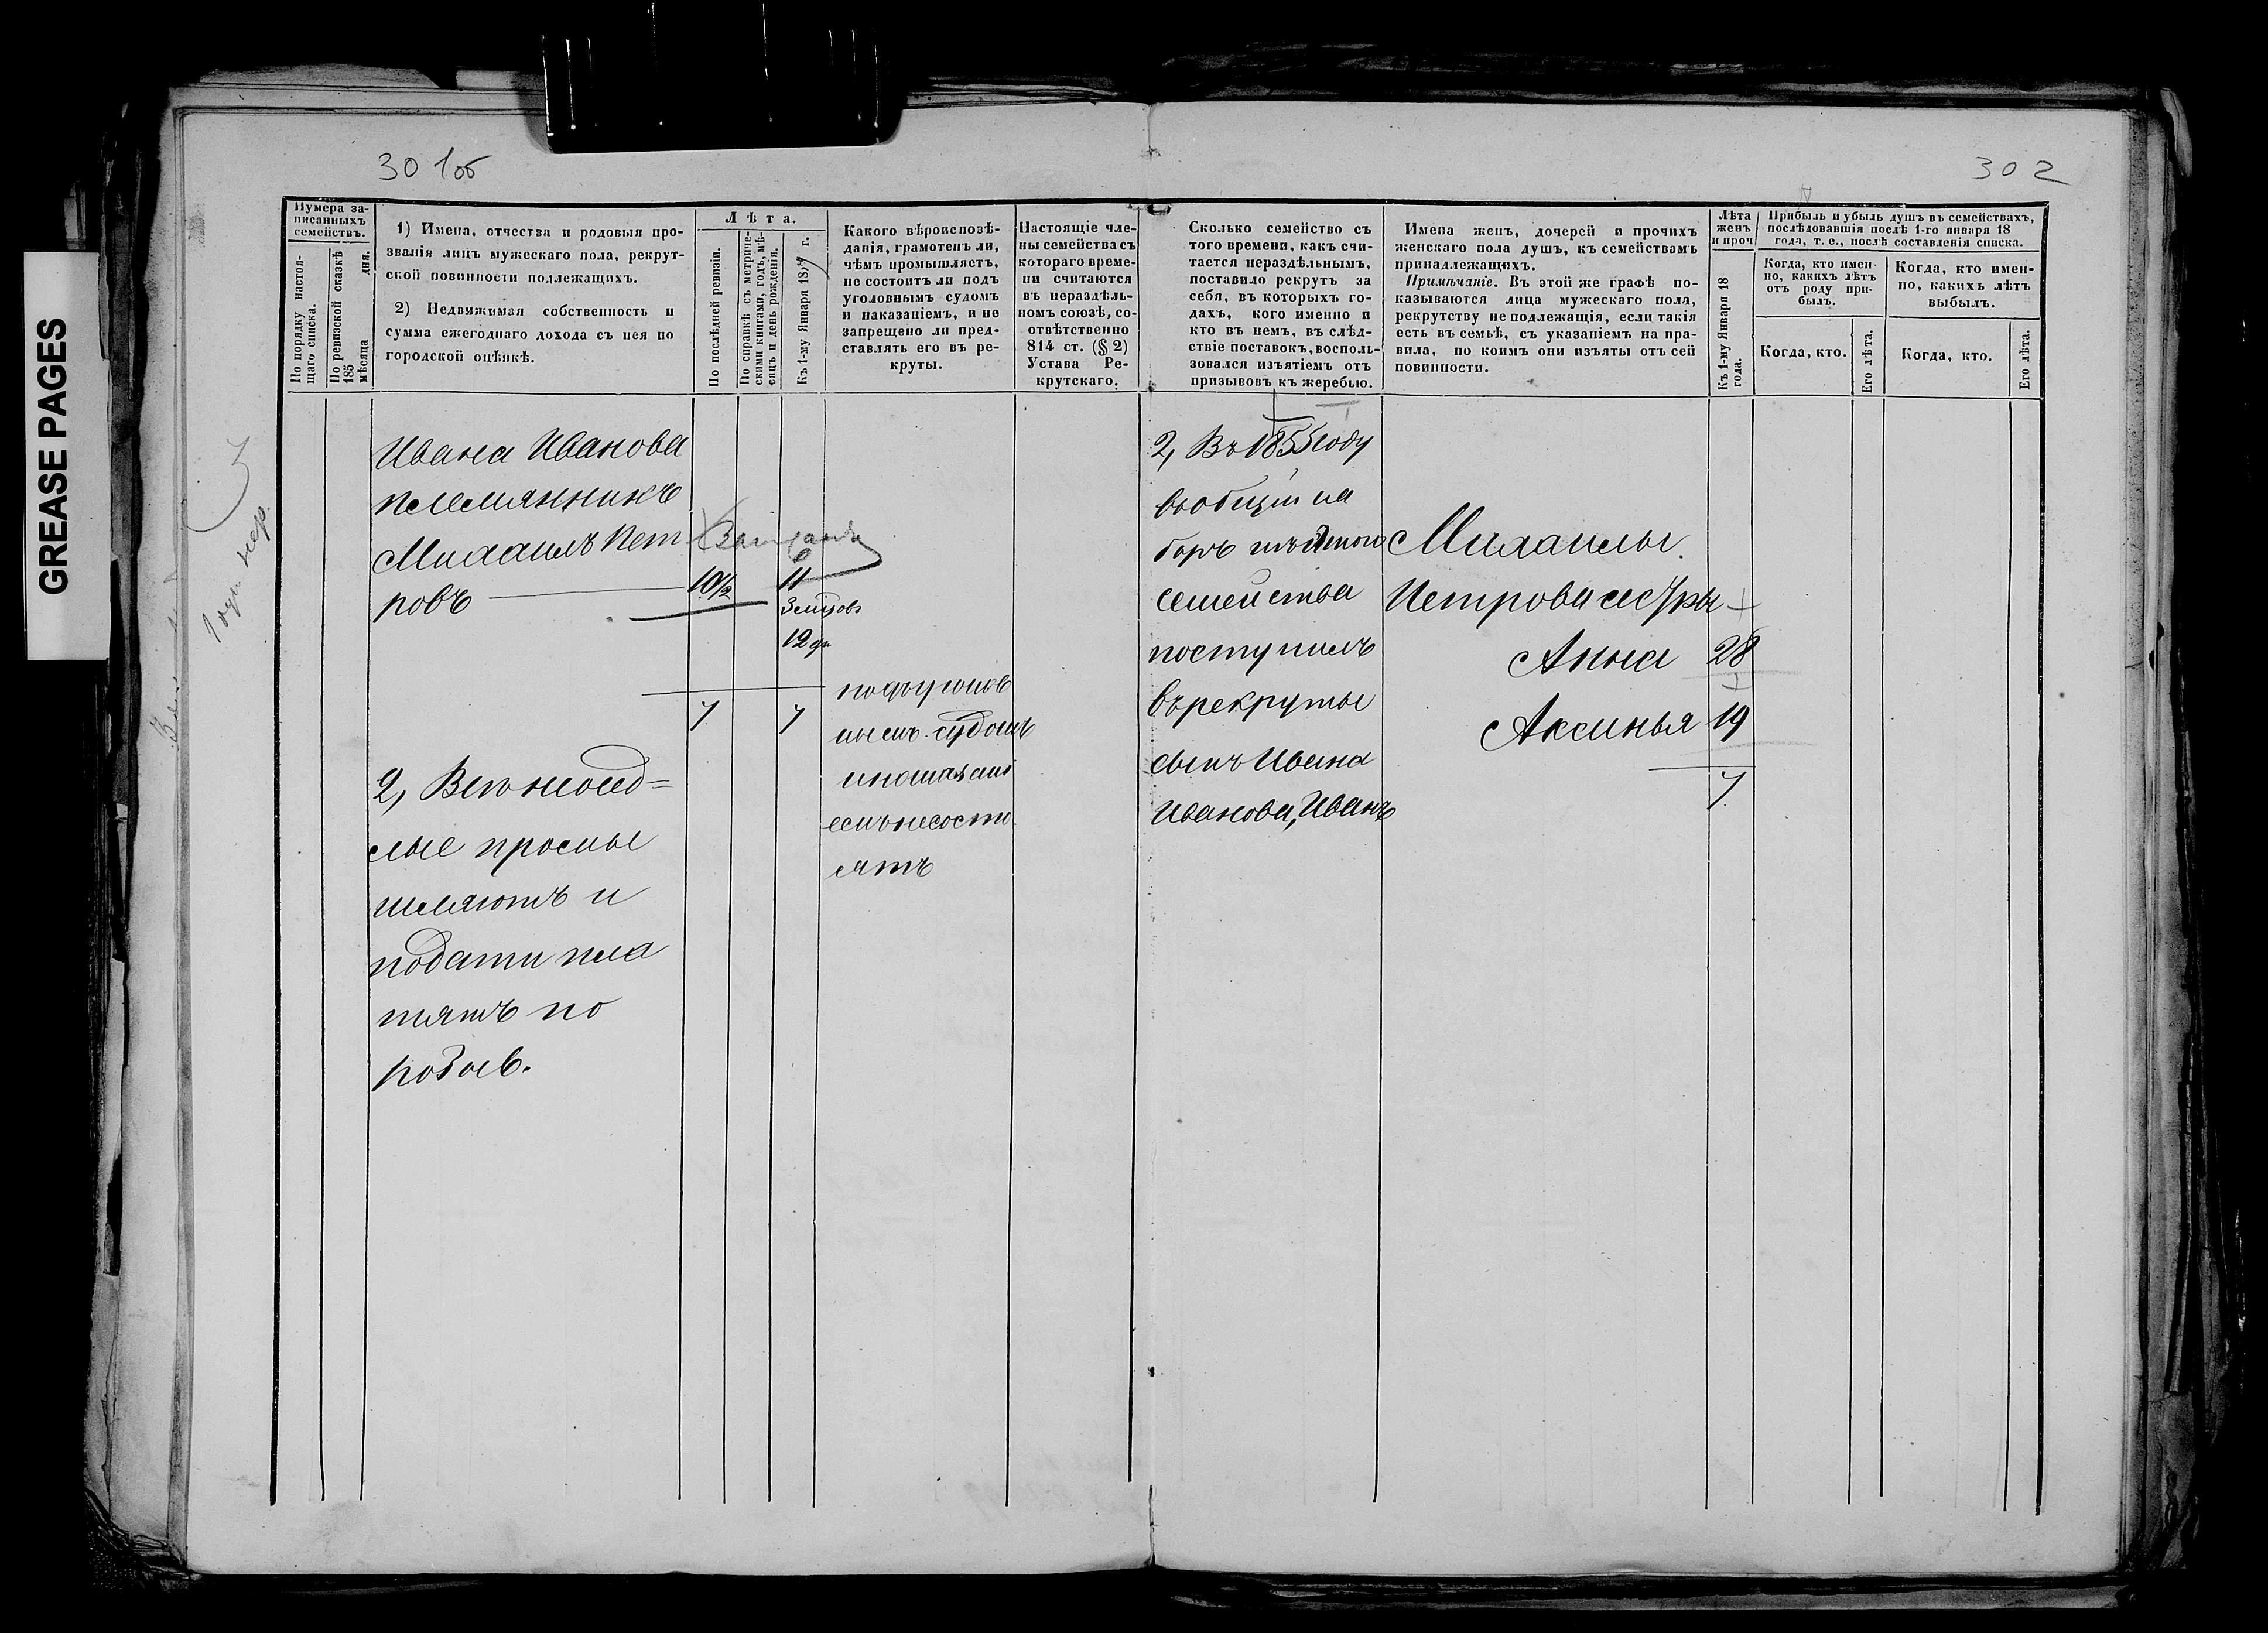 GREASE PAGES
301об
302
Нумера за-
писанныхъ
семействъ.
По порядку настоя-
щаго списка.
По ревизской сказкѣ
185 мѣсяца дня.
1) Имена, отчества и родовыя про-
званія лицъ мужескаго пола, рекрут-
ской повинности подлежащихъ.
2) Недвижимая собственность и
сумма ежегоднаго дохода съ нея по
городской оцѣнкѣ.
Лѣта.
По послѣдней ревизіи.
По справкѣ съ метриче-
скими книгами, годъ, мѣ-
сяцъ и день рожденія.
Къ 1-му Января 18 г.
Какого вѣроисповѣ-
данія, грамотенъ ли,
чѣмъ промышляетъ,
не состоитъ ли подъ
уголовнымъ судомъ
и наказаніемъ, и не
запрещено ли пред-
ставлять его въ ре-
круты.
Настоящіе чле-
ны семейства съ
котораго време-
ни считаются
въ нераздѣль-
номъ союзѣ, со-
отвѣтственно
814 ст. (§ 2)
Устава Ре-
крутскаго.
Сколько семейство съ
того времени, какъ счи-
тается нераздѣльнымъ,
поставило рекрутъ за
себя, въ которыхъ го-
дахъ, кого именно и
кто въ немъ, въ слѣд-
ствіе поставокъ, восполь-
зовался изъятіемъ отъ
призывовъ къ жеребью.
Имена женъ, дочерей и прочихъ
женскаго пола душъ, къ семействамъ
принадлежащихъ.
Примѣчаніе. Въ этой же графѣ по-
казываются лица мужескаго пола,
рекрутству не подлежащія, если такія
есть въ семьѣ, съ указаніемъ на пра-
вила, по коимъ они изъяты отъ сей
повинности.
Лѣта
женъ
и проч
Къ 1-му Января 18
года.
Прибыль и убыль душъ въ семействахъ,
послѣдовавшія послѣ 1-го января 18
года, т. е., послѣ составленія списка.
Когда, кто имен-
но, какихъ лѣтъ
отъ роду при-
былъ.
Когда, кто имен-
но, какихъ лѣтъ
выбылъ.
Когда, кто.
Его лѣта.
Когда, кто.
Его лѣта.
Ивана Иванова
племянникъ
Михаилъ Пет
ровъ
10½
11
12 дн
7
7
2,
лые промы
шляютъ и
подати пла
тятъ по
подъуголов
нымъ судомъ
инаказані
емъ несосто
ятъ
2, Въ 1855 году
вообщій на
боръ изъ этого
семейства
поступилъ
въ рекруты
сынъ Ивана
Иванова, Иванъ
Михаилы
Петрова сестры
Анна 28
Аксинья 19
7